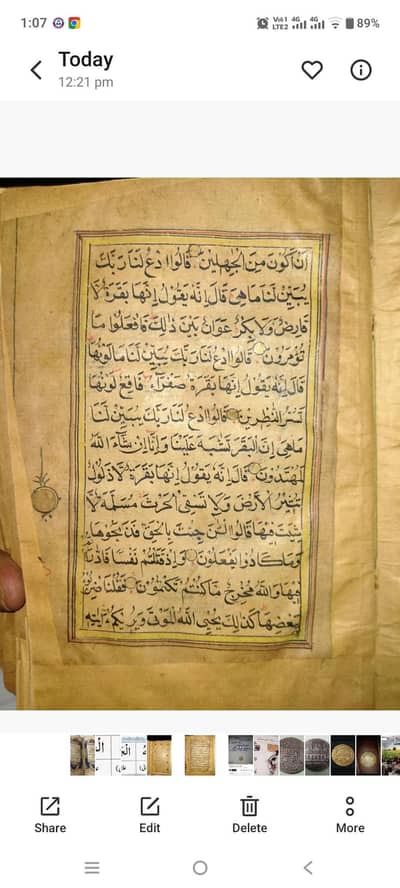 1:07
Vo)) 1 4G 4G
LTE2
89%
Today
12:21 pm
اَنْ اَكُوْنَ مِنَ الْجٰهِلِيْنَ قَالُوا ادْعُ لَنَا رَبَّكَ
يُبَيِّنْ لَنَا مَا هِيَ قَالَ اِنَّهٗ يَقُوْلُ اِنَّهَا بَقَرَةٌ لَّا
فَارِضٌ وَّلَا بِكْرٌ عَوَانٌ بَيْنَ ذٰلِكَ فَافْعَلُوْا مَا
تُؤْمَرُوْنَ قَالُوا ادْعُ لَنَا رَبَّكَ يُبَيِّنْ لَّنَا مَا لَوْنُهَا
قَالَ اِنَّهٗ يَقُوْلُ اِنَّهَا بَقَرَةٌ صَفْرَآءُ فَاقِعٌ لَّوْنُهَا
تَسُرُّ النّٰظِرِيْنَ قَالُوا ادْعُ لَنَا رَبَّكَ يُبَيِّنْ لَّنَا
مَا هِيَ اِنَّ الْبَقَرَ تَشٰبَهَ عَلَيْنَا وَاِنَّا اِنْ شَآءَ اللّٰهُ
لَمُهْتَدُوْنَ قَالَ اِنَّهٗ يَقُوْلُ اِنَّهَا بَقَرَةٌ لَّا ذَلُوْلٌ
تُثِيْرُ الْاَرْضَ وَلَا تَسْقِي الْحَرْثَ مُسَلَّمَةٌ لَّا
شِيَةَ فِيْهَا قَالُوا الْـٰٔنَ جِئْتَ بِالْحَقِّ فَذَبَحُوْهَا
وَمَا كَادُوْا يَفْعَلُوْنَ وَاِذْ قَتَلْتُمْ نَفْسًا فَادّٰرَءْتُمْ
فِيْهَا وَاللّٰهُ مُخْرِجٌ مَّا كُنْتُمْ تَكْتُمُوْنَ فَقُلْنَا اضْرِبُوْهُ
بِبَعْضِهَا كَذٰلِكَ يُحْيِ اللّٰهُ الْمَوْتٰى وَيُرِيْكُمْ اٰيٰتِهٖ
Share
Edit
Delete
More